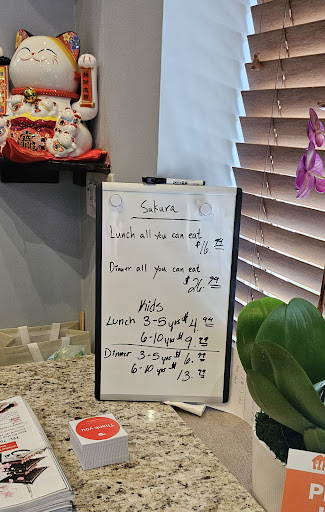 Sakura
Lunch all you can eat
$16.99
Dinner all you can eat
$26.99
Kids
Lunch 3-5 yrs $4.99
6-10 yrs $9.99
Dinner 3-5 yrs $6.99
6-10 yrs $13.99
Thank you
P